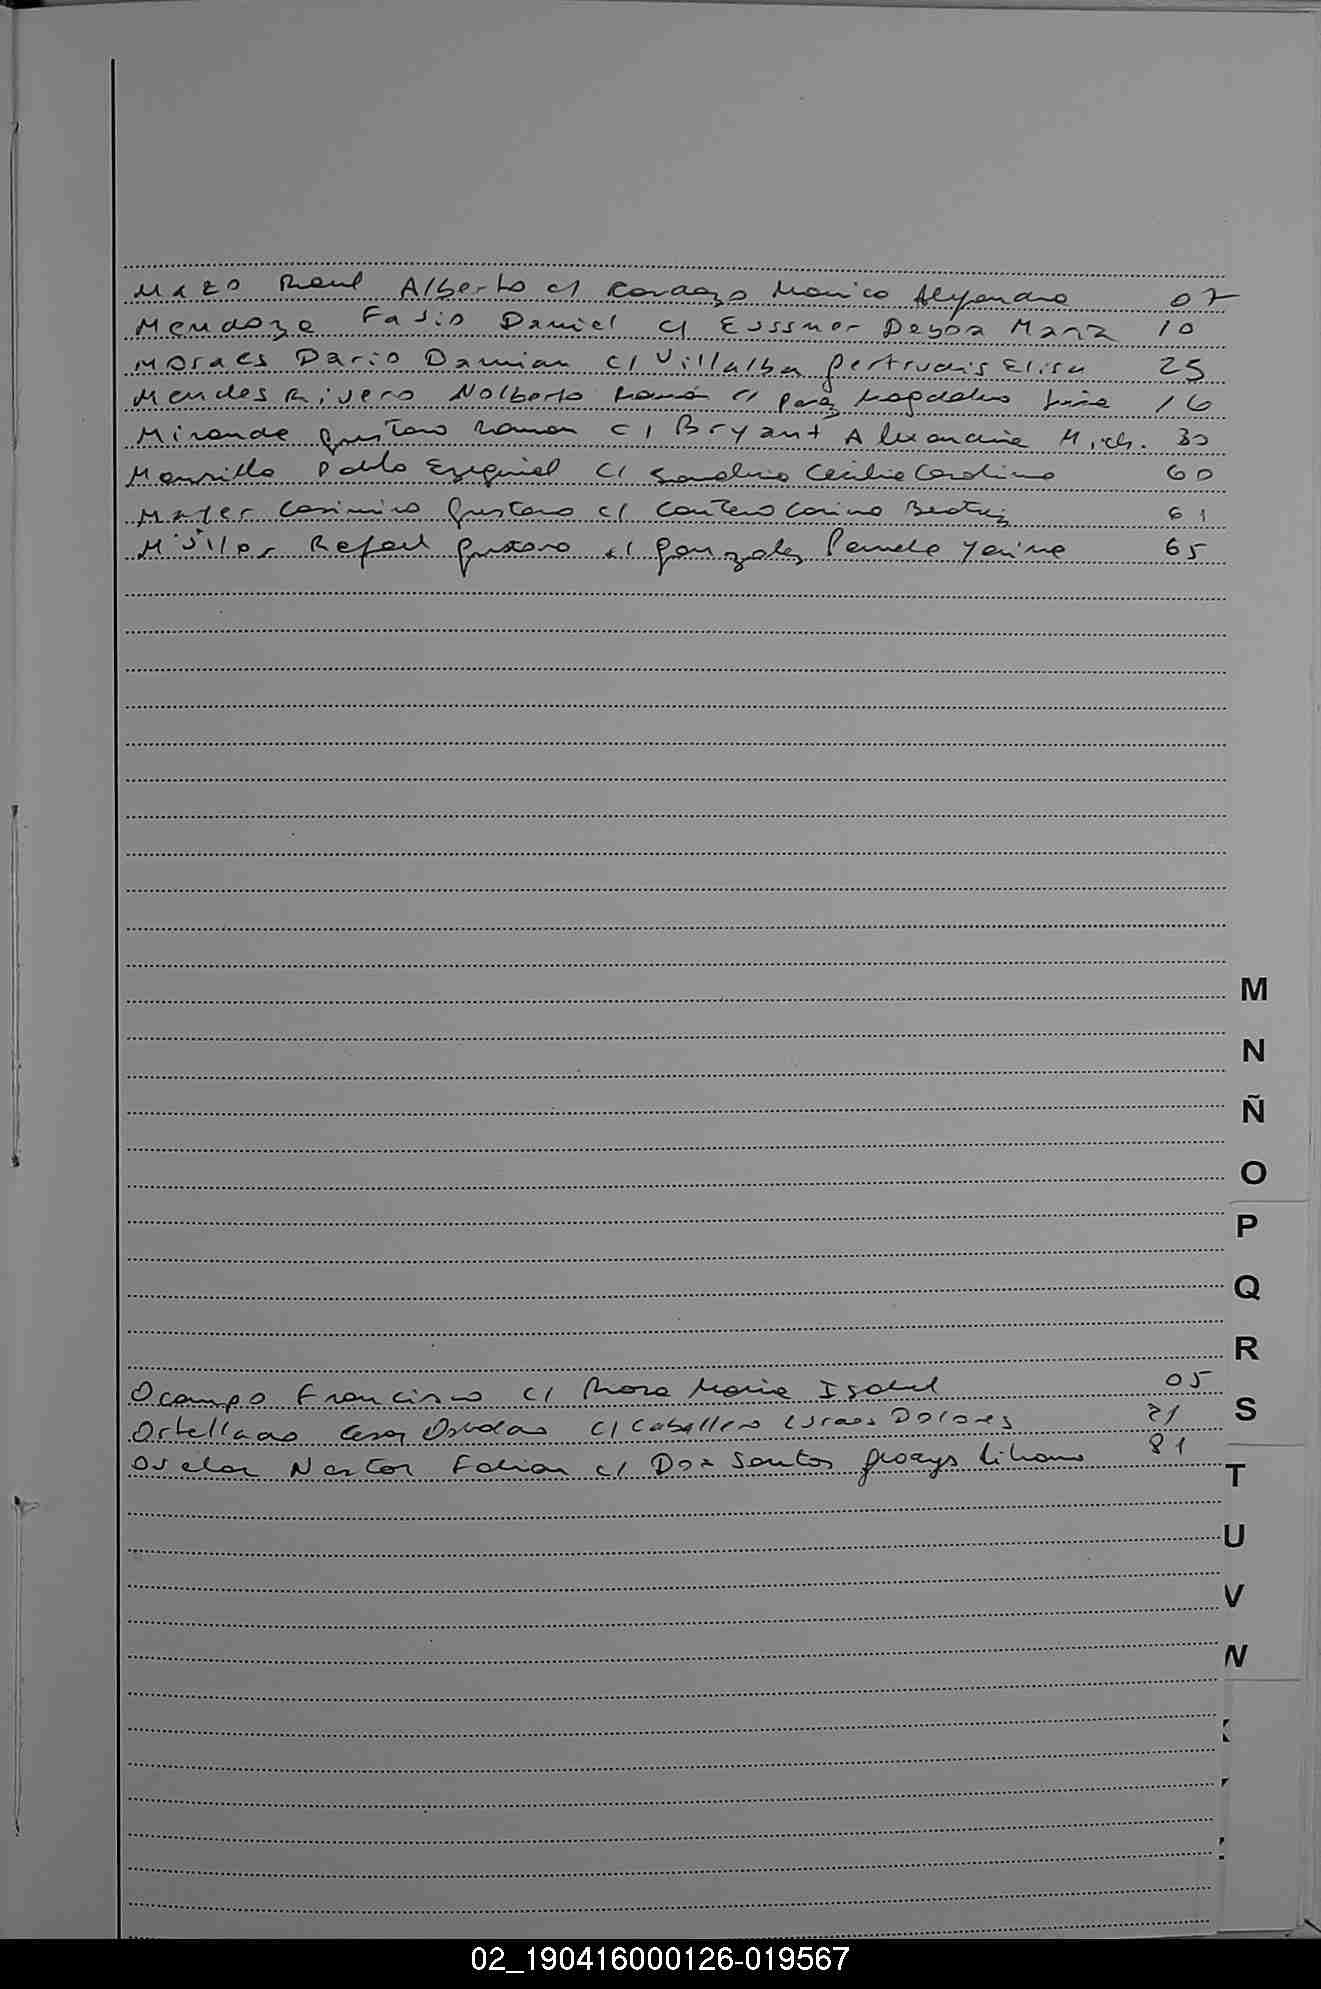 Mazo Raul Alberto c/ Cardozo Monica Alejandra 07
Mendoza Fabio Daniel c/ Eussner Deyba Maria 10
Moraes Dario Damian c/ Villalba Gertrudis Elisa 25
Mendes Rivero Nolberto Ramón c/ Paraz Magdalena 16
Miranda Gustavo Ramon c/ Bryant Alexandria Mich. 30
Mansilla Pablo Ezequiel c/ Cecilia Carolina 60
Mayer Casimiro Gustavo c/ Cantero Carina Beatriz 61
Müller Rafael Gustavo c/ Gonzalez Pamela Yanina 65
M
N
Ñ
O
P
Q
R
Ocampo Francisco c/ Rosa Maria Isabel 05
S
Ortellado Cesar Osvaldo c/ Caballero Dolores 21
Nestor Fabian c/ Dos Santos Gladys Liliana 81
T
U
V
W
02_190416000126-019567